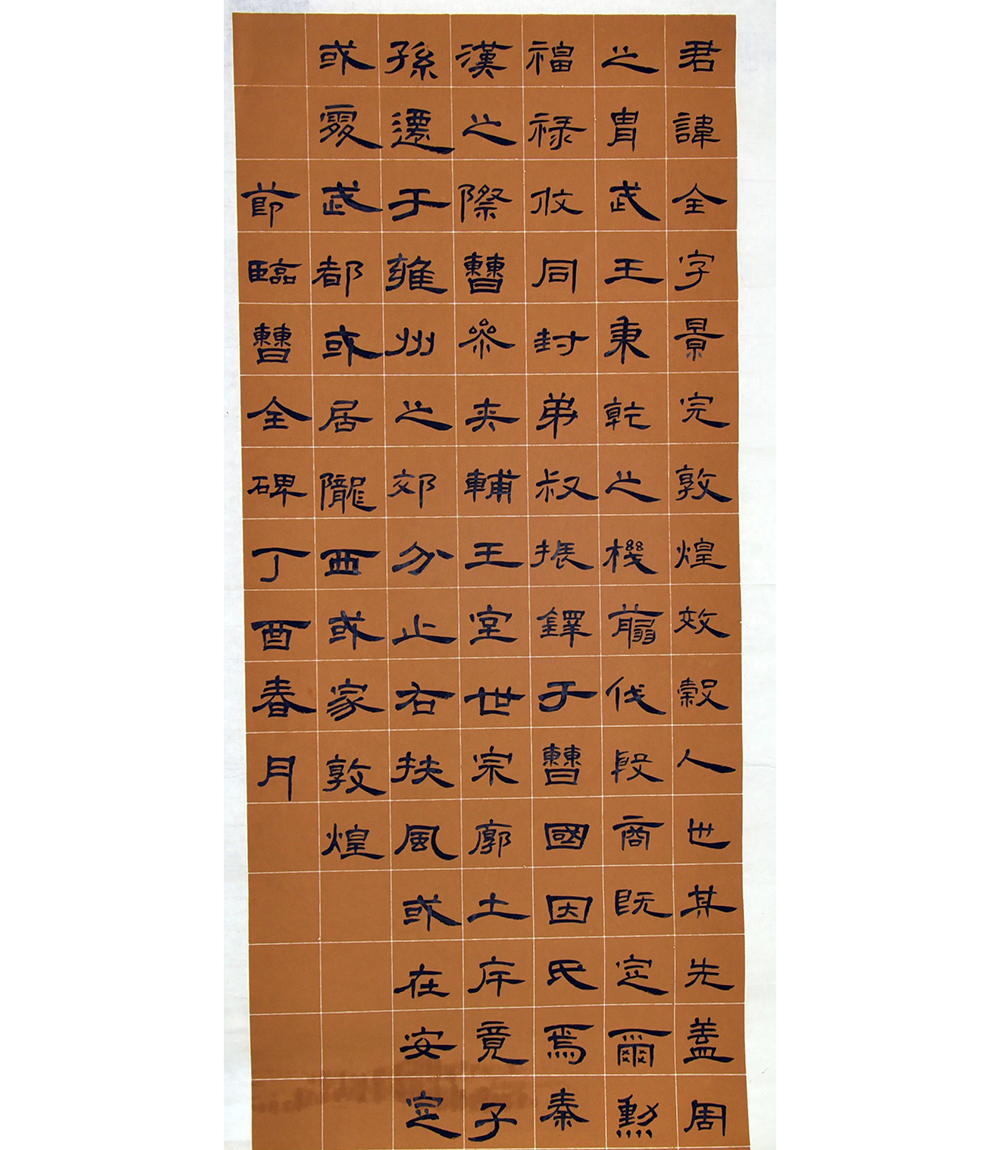 君諱全字景完敦煌效穀人也其先盖周
之胄武王秉乾之機翦伐殷商既定爾勳
福禄攸同封弟叔振鐸于曹國因氏焉秦
漢之際曹參夾輔王室世宗廓土斥竟子
孫遷于雍州之郊分止右扶風或在安定
或處武都或居隴西或家敦煌
節臨曹全碑丁酉春月